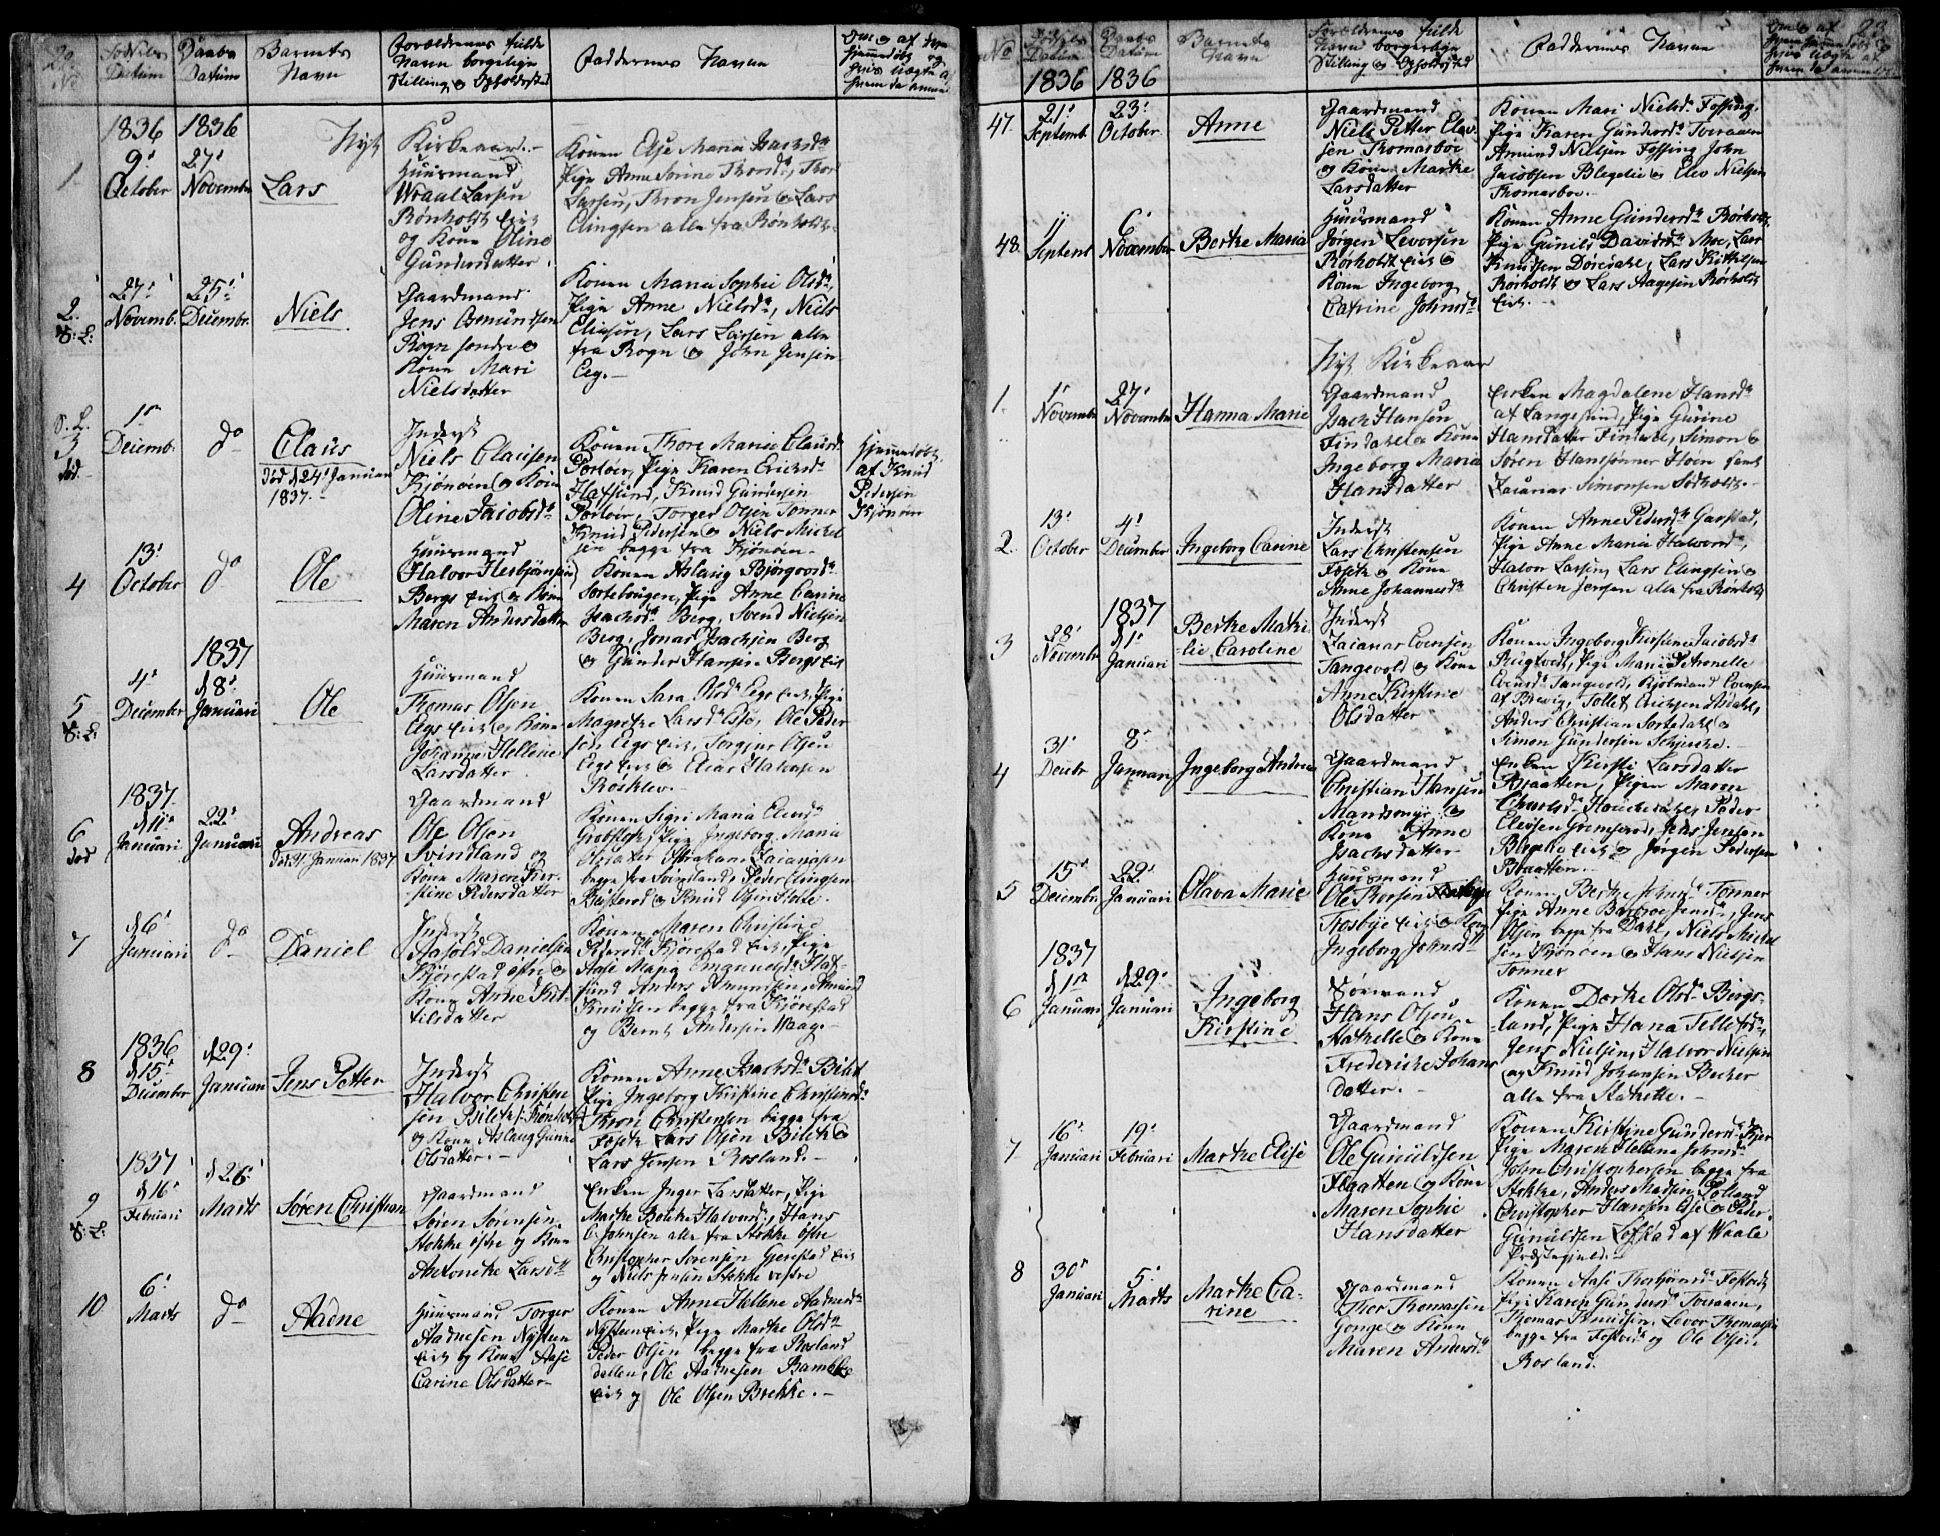 No
Fødsels Datum
Daabs Datum
Barnets Navn
Forældrenes fulde Navn borgelige Stilling og Opholdssted
Faddernes Navne
1836
1836
Nyt Kirkeaar.-
1.
9de October
27de Novembr
Lars
Huusmand
Wraal Larsen
Rønholdt Eiet
og Kone Oline
Gundersdatter.
Konen Else Maria Isachsdr
Pige Anne Sørine Thorsdr, Thor
Larsen, Thron Jensen og Lars
Elingsen alle fra Rønholdt.
2.
V: L:
27de Novemb.
25de Decembr.
Niels
Gaardmand
Jens Osmundsen
Rogn søndre og
Kone Mari
Nielsdatter
Konen Maria Sophie Olsdr,
Pige Anne Nielsdr, Niels
Eliasen, Lars Larsen alle
fra Rogn og John Jensen
Eeg.-
3
død
1ste Decemb.
do
Claus
død d 24de Januari
1837.-
Inderst
Niels Clausen
Kjønøen og Kone
Oline Jacobsdr
Konen Thore Maria Clausdr
Portøer, Pige Karen Ericksdr
Hafsund, Knud Gundersen
Portøer, Torger Olsen Tonner
Knud Pedersen og Niels Mickel
sen begge fra Kjønøen.
Hjemmedøbt
af Knud
Pedersen
Kjønøen
4
13de October
do
Ole
Huusmand
Halvor Herbjørnsen
Bergs Eiet og Kone
Maren Andersdatter
Konen Aslaug Bjørgvordr
Sortebougen, Pige Anne Carine
Isachsdr Berg, Svend Nielsen
Berg, Jonas Isachsen Berg
og Gunder Hansen Bergs Eiet
5
V: L:
4de December
1837
d 8de Januari
Ole
Huusmand
Thomas Olsen
Eegs Eiet og Kone
Johanne Hellene
Larsdatter
Konen Sara Olsdr Eegs Eiet, Pige
Magrethe Larsdr Else, Ole Peder
sen Eegs Eiet, Torgjer Olsen
Eegs Eiet og Elias Halvorsen
Røsklev.
6
død
1837.
d 11te Januari
22de Januari
Andreas
død 31 Januari 1837
Gaardmand
Ole Olsen
Svindland og
Kone Maren Kier-
stine Pedersdatter
Konen Sigri Maria Elevsdr
Grobstok, Pige Ingeborg Maria
Olsdatter Abraham Zacariasen
begge fra Svindland, Peder Elingsen
Rusterød og Knud Olsen Stolte.
7
d 6de Januari
do
Daniel
Inderst
Aasold Danielsen
Kjørestad østre og
Kone Anne Kit-
tilsdatter
Konen Maren Christine
Pedersdr Kjørestad Eiet, Pige
Aase Maria Osmundsdr Haf-
sund Anders Amundsen, Amund
Knudsen begge fra Kjørestad
og Bernt Andersen Waage.
8
1836
d 15de December
d 29de Januari
Jens Petter
Inderst
Halvor Christen
sen Bilet Rønholdt
og Kone Aslaug Gunne
Olsdatter.-
Konen Anne Isachsdr Bilet
Pige Ingeborg Kirstine Christensdr
Thron Christensen begge fra
Fosse Lars Olsen Bilet og
Lars Jensen Rosland.-
9
V: L:
1837
d 16de Februari
d 26de Marts
Søren Christian
Gaardmand
Søren Sørensen
Stokke østre og Kone
Antonette Larsdr
Enken Inger Larsdatter, Pige
Marthe Bolette Halvorsdr, Hans
C. Johnsen alle fra Stokke østre
Christopher Sørensen Gjerestad Eiet
og Niels Jensen Stokke vestre
10
6te Marts
do
Aadne
Huusmand Torger
Aadnesen Nysteen
Eiet og Kone Aase
Carine Olsdatter
Konen Anne Hellene Aadnesdr
Nysteen Eiet, Pige Marthe Olsdr
Peder Olsen begge fra Rosland
dallen, Ole Aadnesen Bamble
Eiet og Ole Olsen Brekke.-
No
Fødsels Datum
Daabs Datum
Barnets Navn
Forældrenes fulde Navn borgerlige Stilling og Opholdssted
Faddernes Navne
1836
1836
47.
21de Septemb
23de October.
Anne
Gaardmand
Niels Petter Elev
sen Thomasbøe
og Kone Marthe
Larsdatter
Konen Mari Nielsdr Fossing.
Pige Karen Gundersdr Torraaen
Amund Nielsen Fossing John
Jacobsen Blegelie og Elev Nielsen
Thomasbøe.
48.
11 Septemb
6te November
Berthe Maria
Huusmand
Jørgen Levorsen
Rørholdt Eiet og
Kone Ingeborg
Catrine Johnsdr
Konen Anne Gundersdr Rørholdt,
Pige Gunild Davidsdr Moe, Lars
Knudsen Dørsdahl, Lars Kittelsen
Rørholdt og Lars Aagesen Rørholdt
Eiet.-
Nyt Kirkeaar
1.
1te Novembr
27de Novembr
Hanna Marie
Gaardmand
Isach Hansen
Findahl og Kone
Ingeborg Maria
Hansdatter
Enken Magdalene Hansdr
af Langesund, Pige Gurine
Hansdatter Findahl, Simon og
Søren Hanssønner Høen samt
Zacarias Simonsen Sødholdt.-
2.
13de October
4de December
Ingeborg Carine
Inderst
Lars Christensen
Fosse og Kone
Anne Johannesdr
Konen Anne Pedersdr Garstad,
Pige Anne Maria Halvorsdr,
Halvor Larsen, Lars Elingsen og
Christen Jensen alle fra Rønholdt
3
28de Novembr
1837
d 1te Januari
Berthe Mathi-
lie Caroline
Inderst
Zacarias Evensen
Tangevold og Kone
Anne Kirstine
Olsdatter
Konen Ingeborg Kirstine Jacobsdr
Rugtvedt, Pige Maria Petronelle
Evensdr Tangevold, Kjølmand Evensen
af Brevig, Tollef Ericksen Aasdahl,
Anders Christian Sortedahl og
Simon Gundersen Schjerke.-
4
31te Decbr
8de Januari
Ingeborg Andrea
Gaardmand
Christian Hansen
Mandsmyr og
Kone Anne
Isachsdatter
Enken Kirsti Larsdatter
Braatten, Pigen Maren
Elevsen Grimserød, Jens Jensen
og Jørgen Pedersen
Braatten.-
5
15de Decembr
22de Januari
Olava Marie
Huusmand
Ole Roersen
Trosbye Eiet og Kone
Ingeborg Johnsdr
Konen Berthe Johnsdr Tonner
Pige Anne Barbroe Jensdr, Jens
Olsen begge fra Dahl, Niels Mickel
sen Kjønøen og Hans Nielsen
Tonner
6
1837
d 1ste Januari
d 29de Januari
Ingeborg
Kirstine
Sømand
Hans Olsen
Stathelle og Kone
Frederikke Johans
datter.-
Konen Dorthe Olsdr Bergs-
land, Pige Hana Tellefsdr,
Jens Nielsen, Halvor Nielsen
og Knud Johansen Becker
alle fra Stathelle.-
7
16de Januari
19de Februari
Marthe Elise
Gaardmand
Ole Gunuldsen
Flaatten og Kone
Maren Sophie
Hansdatter
Konen Kirstine Gundersdr Kjer
Pige Maren Hellene Johnsdr
John Christophersen begge fra
Stokke, Anders Madsen Lolland
Christopher Hansen Else og Peder
Gunuldsen Løfstad af Waale
Præstegield.-
8
30te Januari
5te Marts
Marthe Ca-
rine
Gaardmand
Thor Thomassen
Gonge og Kone
Maren Andersdr
Konen Aase Thorsdr Fostvedt
Pige Karen Gundersdr Torraaen,
Thomas Knudsen, Levor Thomassen
begge fra Fostvedt og Ole Olsen
Rosland.